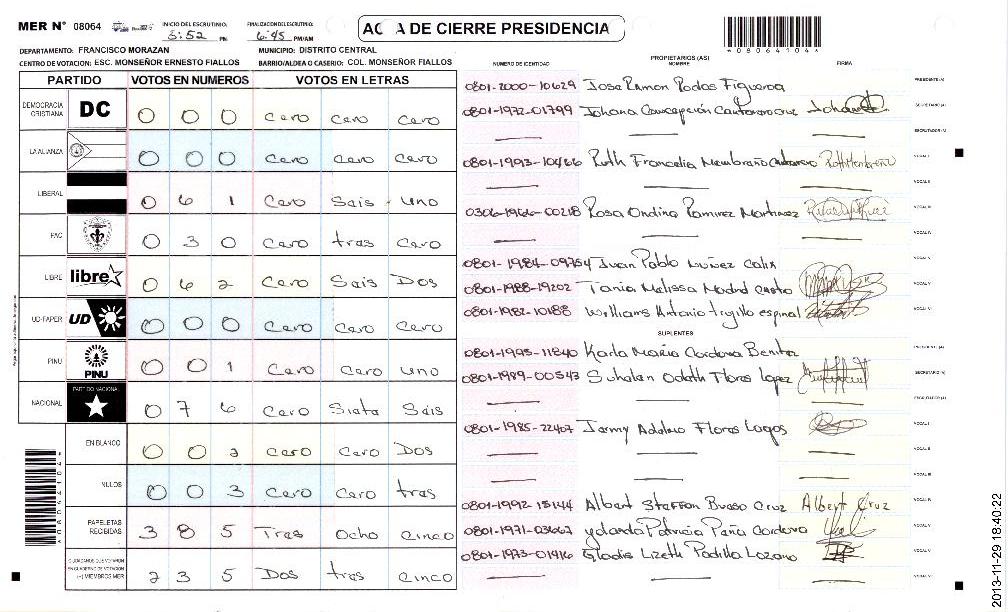 MER N° 08064
INICIO DEL ESCRUTINIO:
5:52 PM
FINALIZACION DEL ESCRUTINIO:
6:45 PM/AM
ACTA DE CIERRE PRESIDENCIA
DEPARTAMENTO: FRANCISCO MORAZAN
MUNICIPIO: DISTRITO CENTRAL
CENTRO DE VOTACION: ESC. MONSEÑOR ERNESTO FIALLOS
BARRIO/ALDEA O CASERIO: COL. MONSEÑOR FIALLOS
PARTIDO VOTOS EN NUMEROS VOTOS EN LETRAS
DEMOCRACIA CRISTIANA DC 0 0 0 Cero Cero Cero
LA ALIANZA 0 0 0 Cero Cero Cero
LIBERAL 0 6 1 Cero Seis Uno
PAC 0 3 0 Cero tres Cero
LIBRE libre 0 6 2 Cero Seis Dos
UD-FAPER UD 0 0 0 Cero Cero Cero
PINU PINU 0 0 1 Cero Cero Uno
NACIONAL PARTIDO NACIONAL 0 7 6 Cero Siete Seis
EN BLANCO 0 0 2 Cero Cero Dos
NULOS 0 0 3 Cero Cero tres
PAPELETAS RECIBIDAS 3 8 5 Tres Ocho Cinco
CIUDADANOS QUE VOTARON EN CUADERNO DE VOTACION (+) MIEMBROS MER 2 3 5 Dos tres Cinco
NUMERO DE IDENTIDAD
PROPIETARIOS (AS)
NOMBRE
FIRMA
0801-2000-10629 Jose Ramon Rodas Figueroa PRESIDENTE (A)
0801-1972-01799 Johana Concepción SECRETARIO (A)
ESCRUTADOR (A)
0801-1993-10466 Ruth Francelia Membraño VOCAL I
VOCAL II
0306-1966-00218 Rosa Ondina Ramirez Martinez VOCAL III
VOCAL IV
0801-1984-09754 Juan Pablo Nuñez Calix
0801-1988-19202 Tania Melissa Madrid Castro VOCAL V
0801-1982-10188 Williams Antonio trujillo espinal VOCAL VI
SUPLENTES
0801-1995-11840 Karla Maria Cordova Benitez PRESIDENTE (A)
0801-1989-00543 Suhelen Odeth Flores Lopez SECRETARIO (A)
ESCRUTADOR (A)
0801-1985-22407 Jenny Adelina Flores Lagos VOCAL I
VOCAL II
VOCAL III
0801-1992-15144 Albert Steffon Busso Cruz Albert Cruz VOCAL IV
0801-1971-03667 Yolanda Patricia Peña Cordova VOCAL V
0801-1973-01416 Gladis Lizeth Padilla Lozano VOCAL VI
2013-11-29 18:40:22